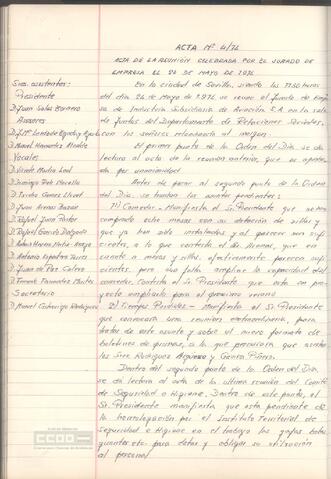 ACTA Nº 4/76
ACTA DE LA REUNIÓN CELEBRADA POR EL JURADO DE
EMPRESA EL 20 DE MAYO DE 1976
Sres. asistentes:
Presidente
D. Juan Salas
Asesores
D. Manuel Hernandez
Vocales
D. Vicente
D. Domingo
D.
D. Juan Arenas Bazar
D. Rafael
D. Rafael García Delgado
D.
D. Antonio
D. Juan de Paz Calero
D. Fernando Fernandez
Secretario
D. Manuel Rodríguez
En la ciudad de Sevilla, siendo las 17,30 horas
del día 20 de Mayo de 1976 se reune el Jurado de Empre-
sa de Industria Subsidiaria de Aviación S.A. en la sala
de Juntas del Departamento de Relaciones Sociales,
con los señores relacionados al margen.
El primer punto de la Orden del Día, se da
lectura al acta de la reunión anterior, que es aproba-
da por unanimidad
Antes de pasar al segundo punto de la Orden
del Día, se tratan los asuntos pendientes:
1) Comedor - Manifiesta el Sr. Presidente que se han
comprado ocho mesas con su dotación de sillas y
que ya han sido instaladas y al parecer son sufi-
cientes, a lo que contesta el Sr. Arenas, que en
cuanto a mesas y sillas, efectivamente parecen sufi-
cientes pero falta ampliar la capacidad del
comedor. Contesta el Sr. Presidente que esta en pro-
yecto ampliarlo para el proximo verano
2) Tiempos Perdidos - Manifiesta el Sr. Presidente
que convocará una reunion extraordinaria, para
tratar de este asunto y sobre el nuevo formato de
boletines de primas, a la que procurará que asistan
los Sres. Rodriguez y García
Dentro del segundo punto de la Orden del Día,
se da lectura al acta de la ultima reunion del Comité
de Seguridad e Higiene. Dentro de este punto, el
Sr. Presidente manifiesta que esta pendiente de
la homologación por el Instituto Territorial de
Seguridad e Higiene en el trabajo las gafas, botas,
guantes, etc. para dotar y obligar su utilización
al personal
CCOO